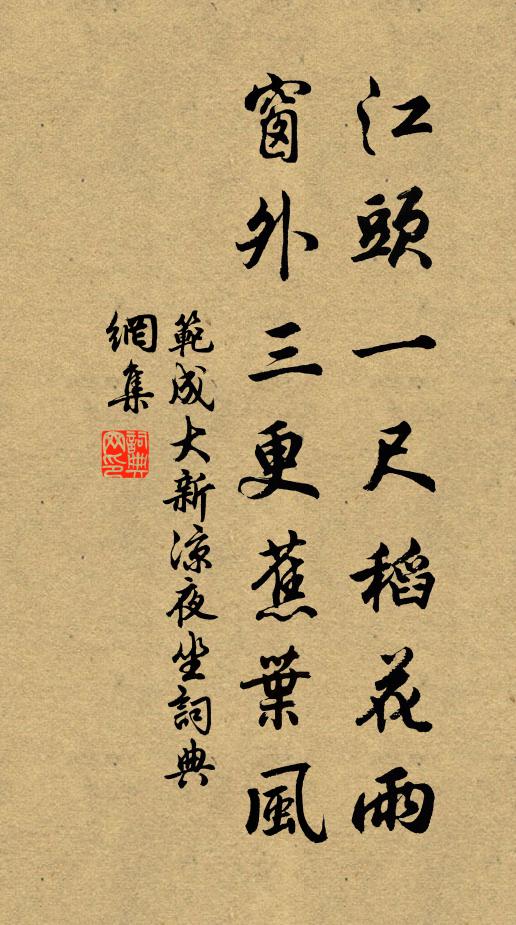 江頭一尺稻花雨
窗外三更蕉葉風
範成大新涼夜坐詞典
網集
詞典網印